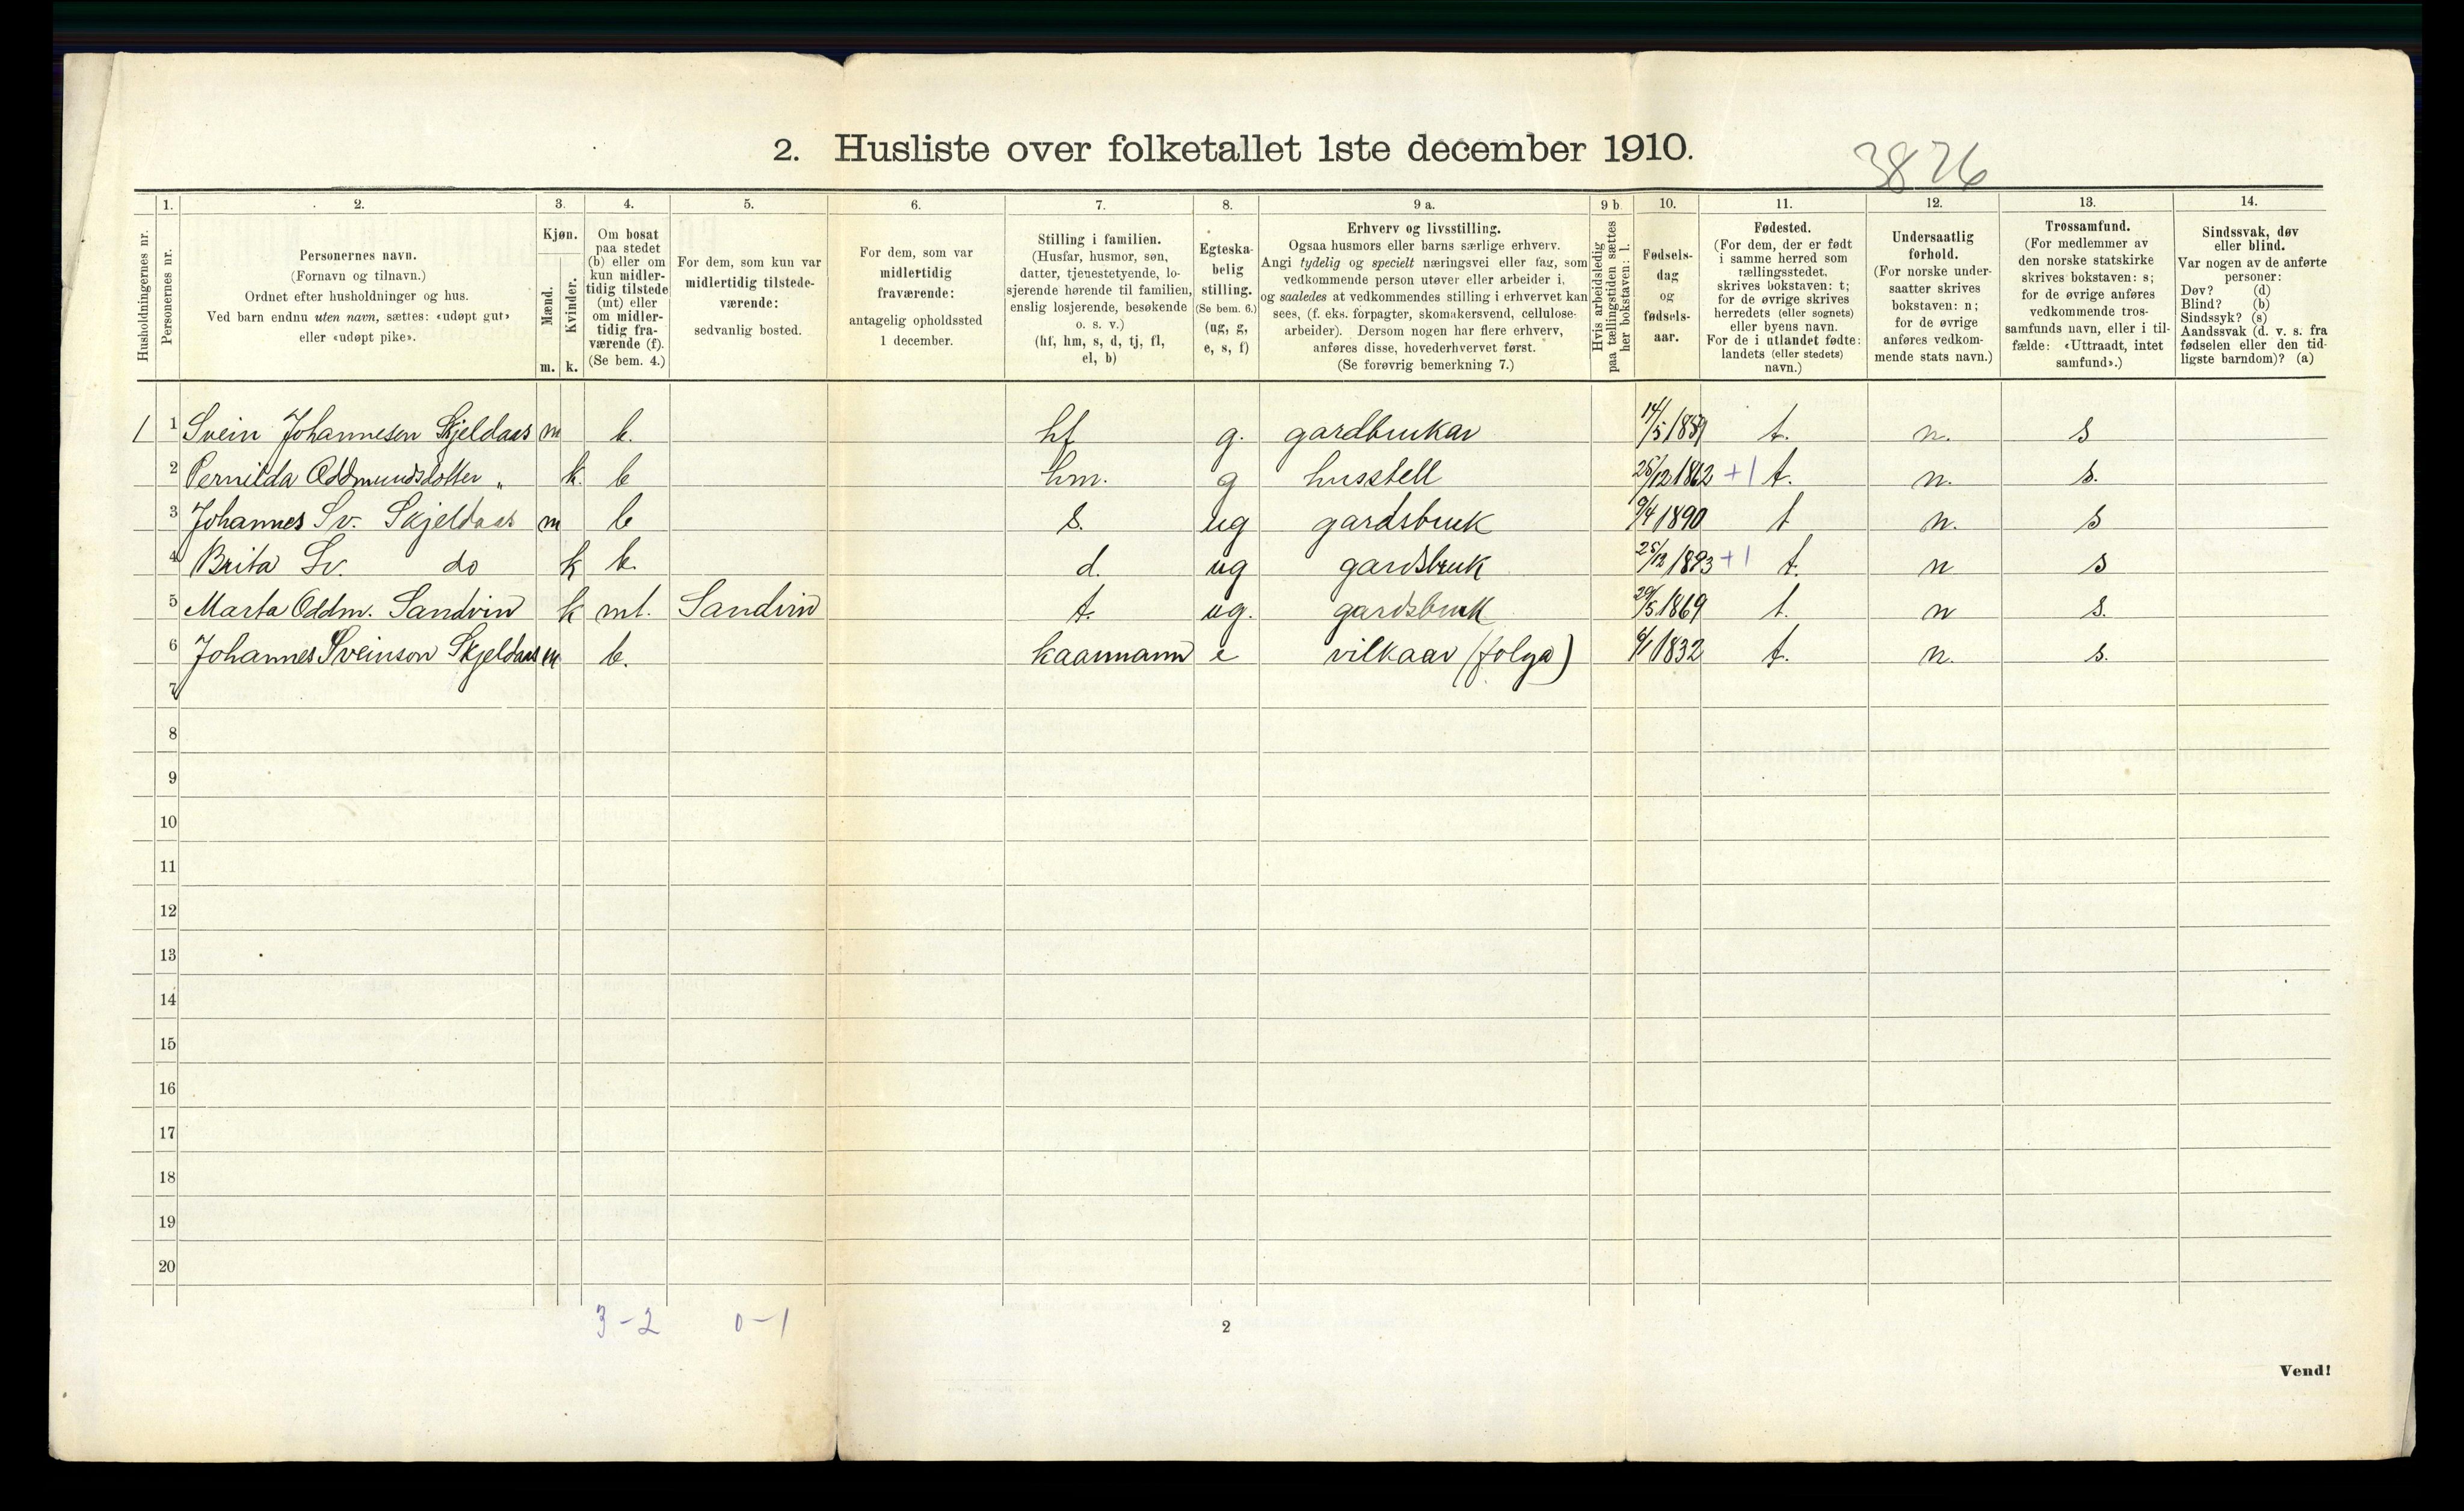 2. Husliste over folketallet 1ste december 1910.
3826
Husholdningernes nr.
1.
Personernes nr.
2.
Personernes navn.
(Fornavn og tilnavn.)
Ordnet efter husholdninger og hus.
Ved barn endnu uten navn, sættes: «udøpt gut»
eller «udøpt pike».
3.
Kjøn.
Mænd.
Kvinder.
m. k.
4.
Om bosat
paa stedet
(b) eller om
kun midler-
tidig tilstede
(mt) eller
om midler-
tidig fra-
værende (f).
(Se bem. 4.)
5.
For dem, som kun var
midlertidig tilstede-
værende:
sedvanlig bosted.
6.
For dem, som var
midlertidig
fraværende:
antagelig opholdssted
1 december.
7.
Stilling i familien.
(Husfar, husmor, søn,
datter, tjenestetyende, lo-
sjerende hørende til familien,
enslig losjerende, besøkende
o. s. v.)
(hf, hm, s, d, tj, fl,
el, b)
8.
Egteska-
belig
stilling.
(Se bem. 6.)
(ug, g,
e, s, f)
9 a.
Erhverv og livsstilling.
Ogsaa husmors eller barns særlige erhverv.
Angi tydelig og specielt næringsvei eller fag, som
vedkommende person utøver eller arbeider i,
og saaledes at vedkommendes stilling i erhvervet kan
sees, (f. eks. forpagter, skomakersvend, cellulose-
arbeider). Dersom nogen har flere erhverv,
anføres disse, hovederhvervet først.
(Se forøvrig bemerkning 7.)
9 b.
Hvis arbeidsledig
paa tællingstiden sættes
her bokstaven: l.
10.
Fødsels-
dag
og
fødsels-
aar.
11.
Fødested.
(For dem, der er født
i samme herred som
tællingsstedet,
skrives bokstaven: t;
for de øvrige skrives
herredets (eller sognets)
eller byens navn.
For de i utlandet fødte:
landets (eller stedets)
navn.)
12.
Undersaatlig
forhold.
(For norske under-
saatter skrives
bokstaven: n;
for de øvrige
anføres vedkom-
mende stats navn.)
13.
Trossamfund.
(For medlemmer av
den norske statskirke
skrives bokstaven: s;
for de øvrige anføres
vedkommende tros-
samfunds navn, eller i til-
fælde: «Uttraadt, intet
samfund».)
14.
Sindssvak, døv
eller blind.
Var nogen av de anførte
personer:
Døv? (d)
Blind? (b)
Sindssyk? (s)
Aandssvak (d. v. s. fra
fødselen eller den tid-
ligste barndom)? (a)
1 1 Svein Johannesen Skjeldaas m b. hf g. gardbrukar 14/5 1859 t. n. s
2 Pernilda Oddmundsdotter „ k. b hm. g husstell 25/12 1862 +1 t. n. s.
3 Johannes Sv. Skjeldaas m b s. ug gardsbruk 9/4 1890 t n. s
4 Brita Sv. do k b. d. ug gardsbruk 25/12 1893 +1 t. n s
5 Marta Oddm. Sandvin k mt. Sandvin t. ug. gardsbruk 29/5 1869 t. n s.
6 Johannes Sveinson Skjeldaas m b. kaarmann e vilkaar (folga) 6/1 1832 t. n. s.
7
8
9
10
11
12
13
14
15
16
17
18
19
20
3-2 0-1
2
Vend!